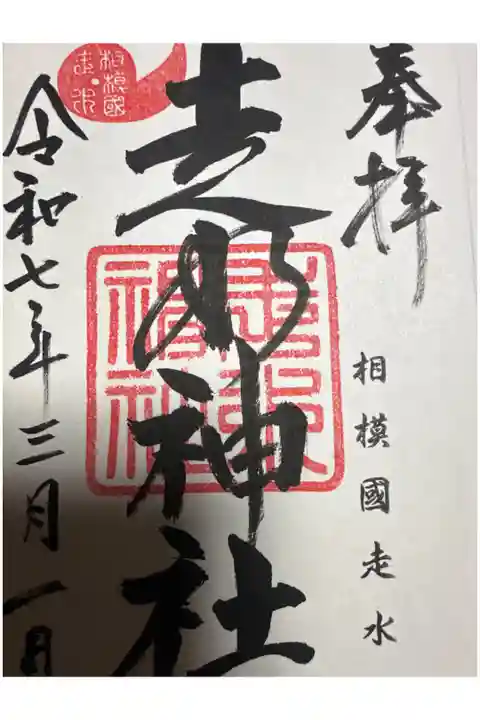 奉拝
相模國走水
走水神社
令和七年三月一日
相模國
走水
走水
神社